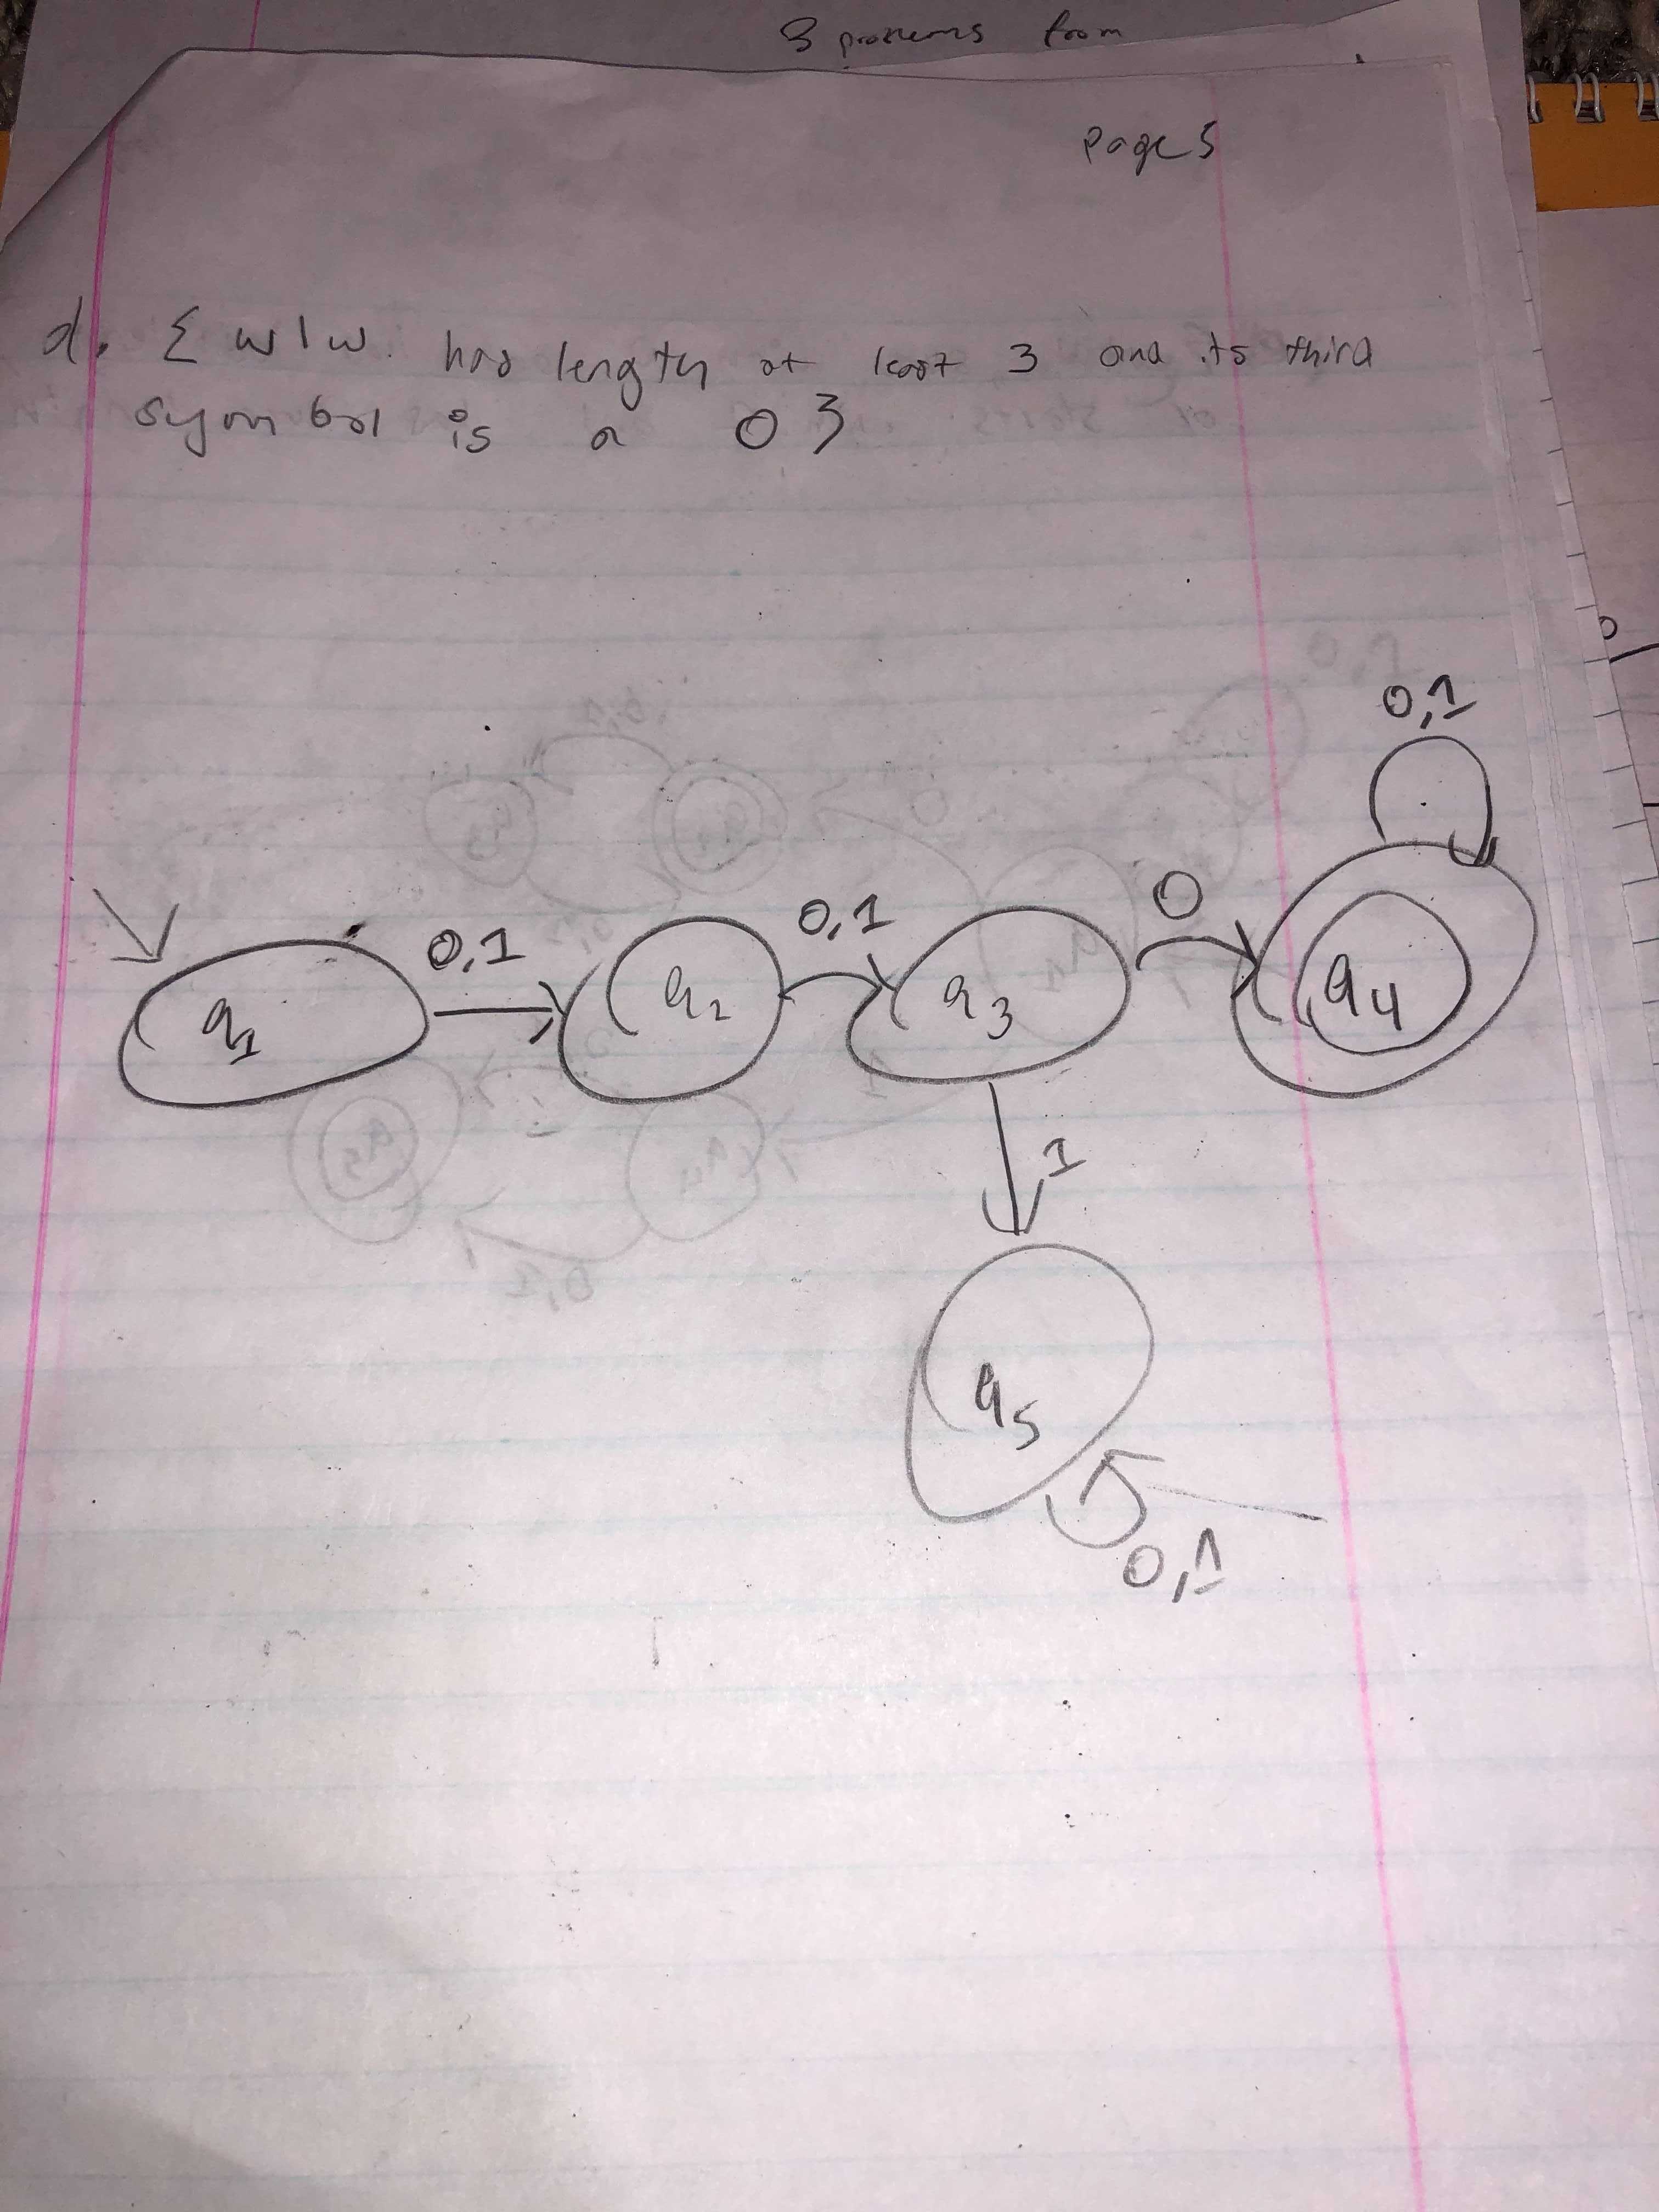 3 problems from
page 5
d. { w | w has length at least 3 and its third
symbol is a 0 }
0,1
0,1 0,1 0
q1 q2 q3 q4
1
q5
0,1